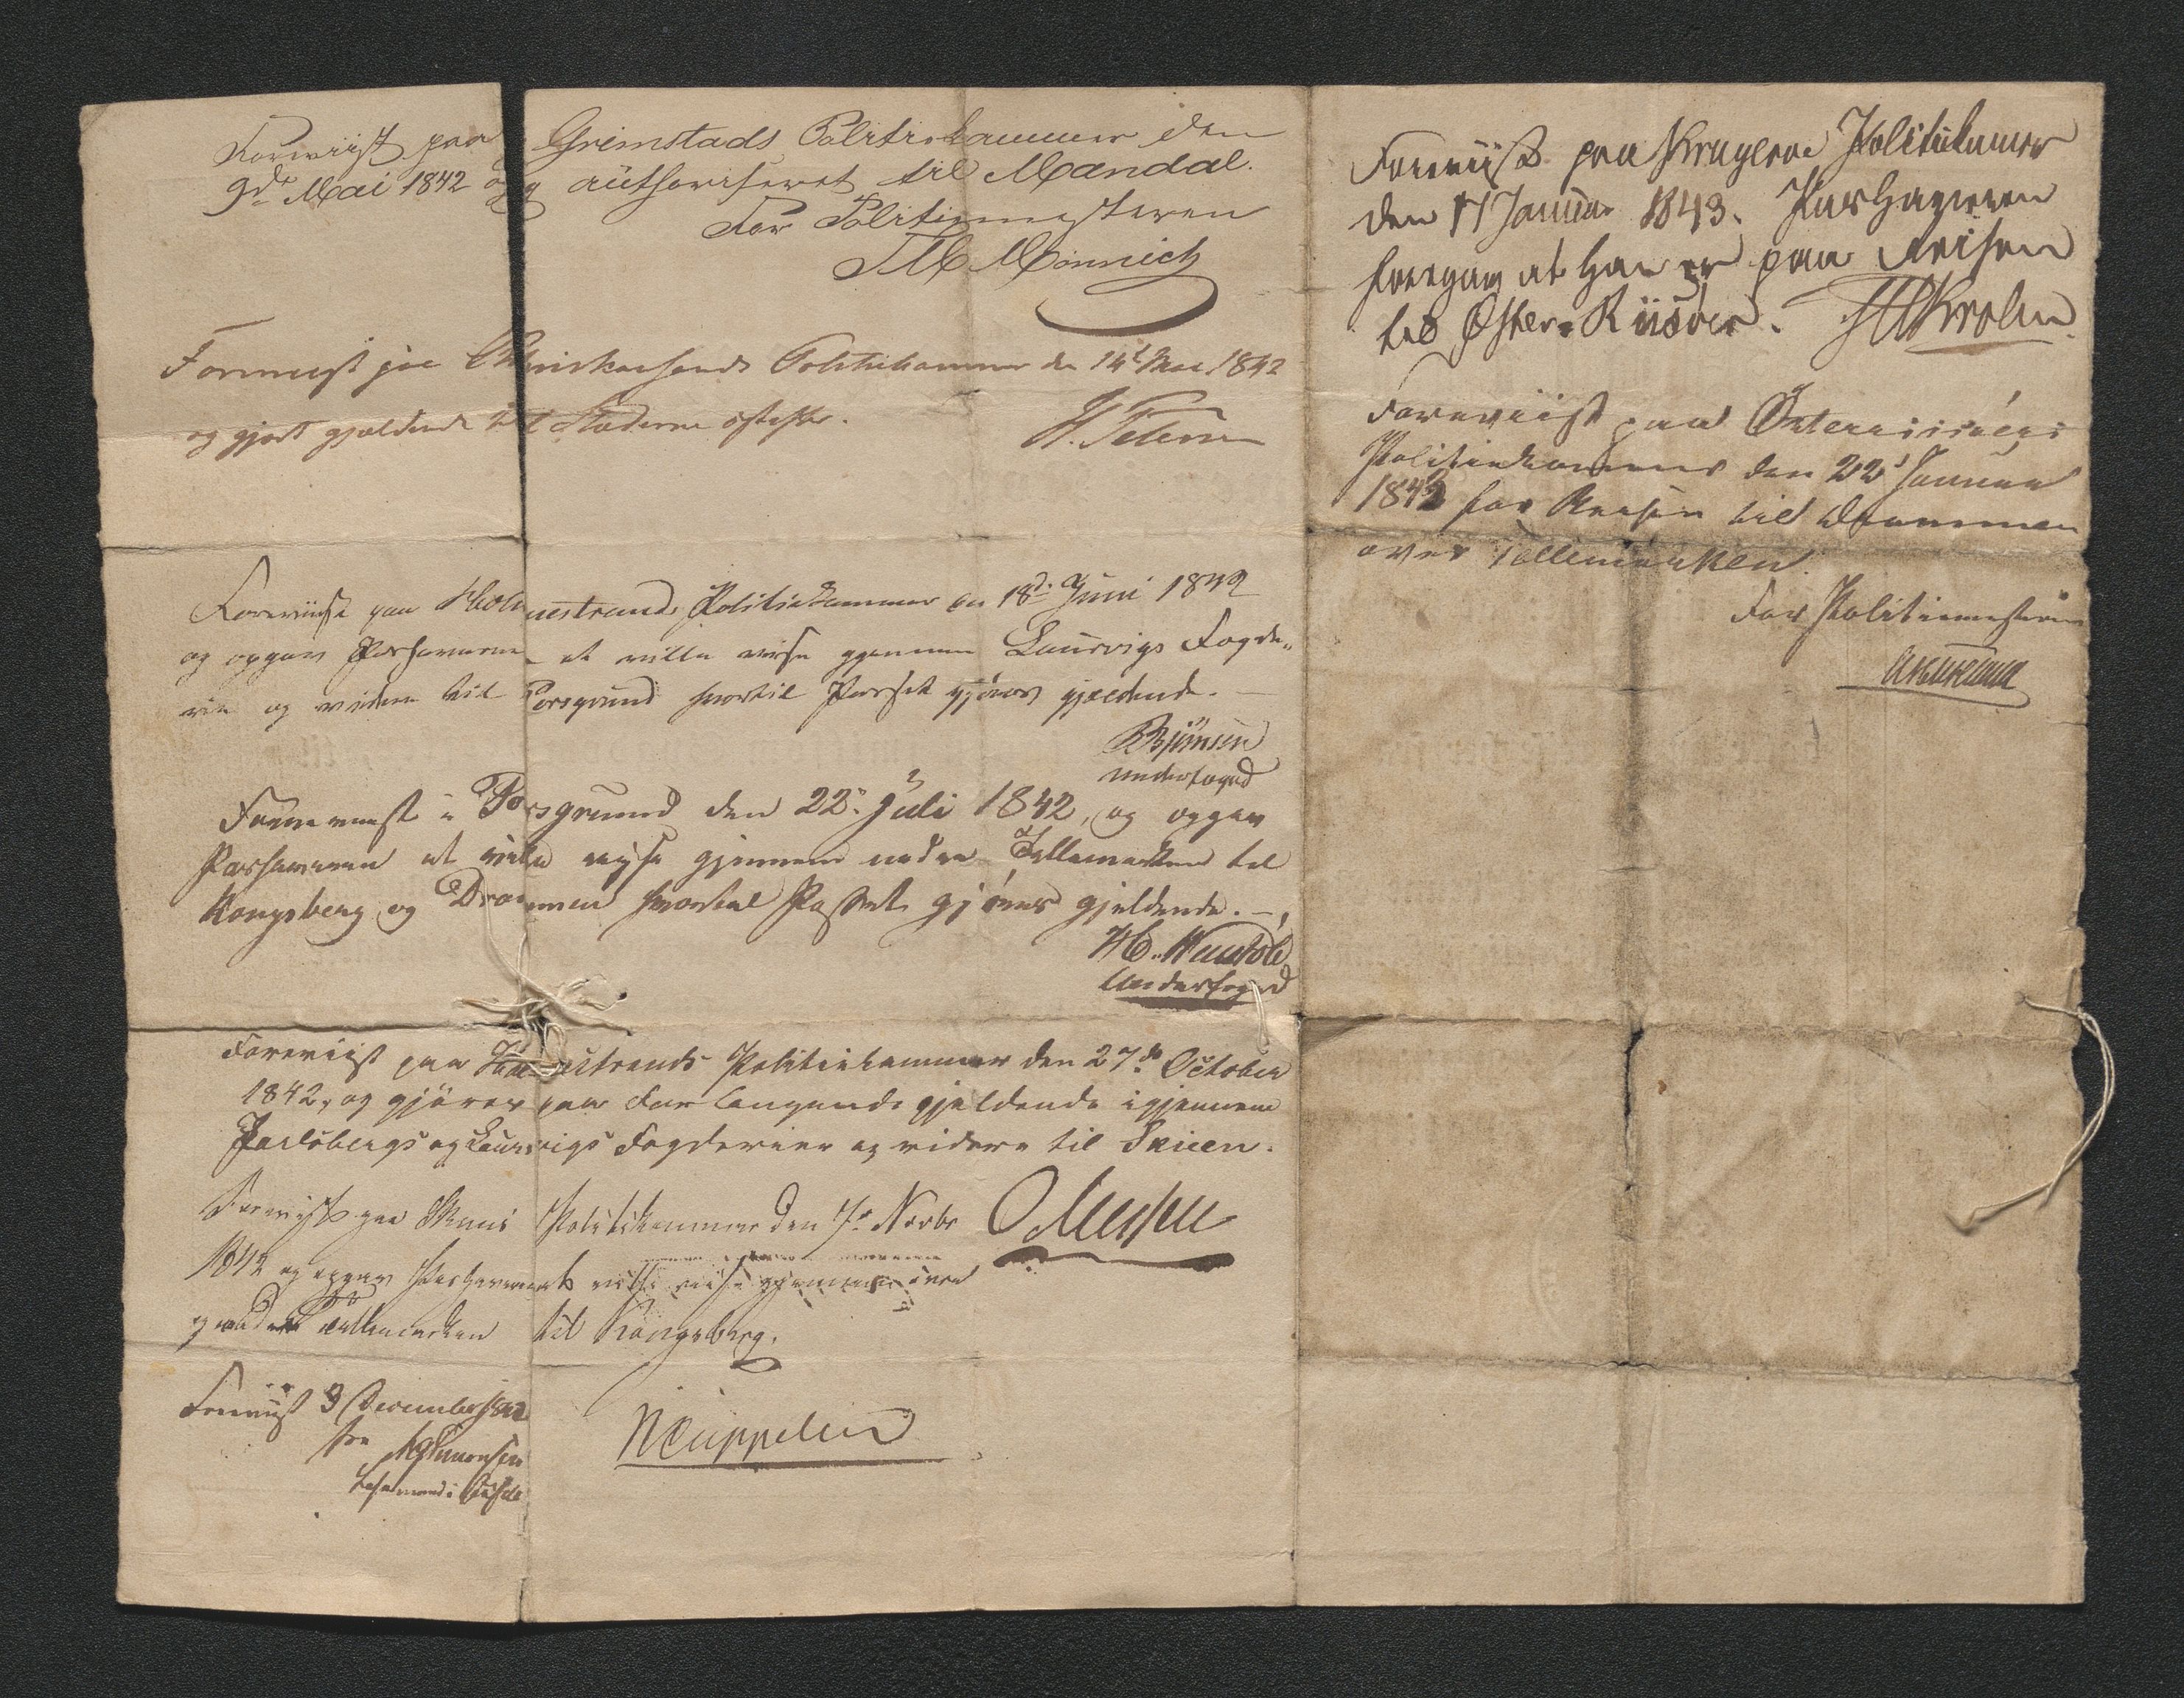 Foreviist paa Grimstads Politiekammer den
9de Mai 1842 og authoriseret til Mandal.
For Politiemesteren
Mönnich
Forevist paa Christiansands Politikammer den 14de Mai 1842
og gjort gjældende til Stæderne
H. Petersen
Foreviist paa Holmestrands Politiekammer den 18de Juni 1842
og opgav Passhaveren at ville reise gjennem Laurvigs Fogde-
rie og videre til Porsgrund hvortil Passet gjöres gjældende.
Underfoged
Foreviist i Porsgrund den 22de Juli 1842, og opgav
Passhaveren at ville reise gjennem nedre Tellemarken til
Kongsberg og Drammen hvortil Passet gjöres gjeldende.
Underfoged
Foreviist paa Holmestrands Politiekammer den 27de October
1842, og gjöres paa Forlangende gjeldende igjennem
Jarlsbergs og Laurvigs Fogderier og videre til Skien.
Foreviist paa Skiens Politikammer den Novbr
1842 og opgav Passhaveren at ville reise gjennem övre
og nedre Tellemarken til Kongsberg.
Foreviist 3 December 1842
Simonsen
Lensmand i
N Cuppelen
Foreviist paa Krageröe Politiekamer
den 17 Januar 1843. Passhaveren
foregav at han er paa Reisen
til Öster-Riisöer.
Foreviist paa Österriisöers
Politiekammer den 22d Januar
1843 for Reisen til Drammen
over Tellemarken.
For Politiemesteren